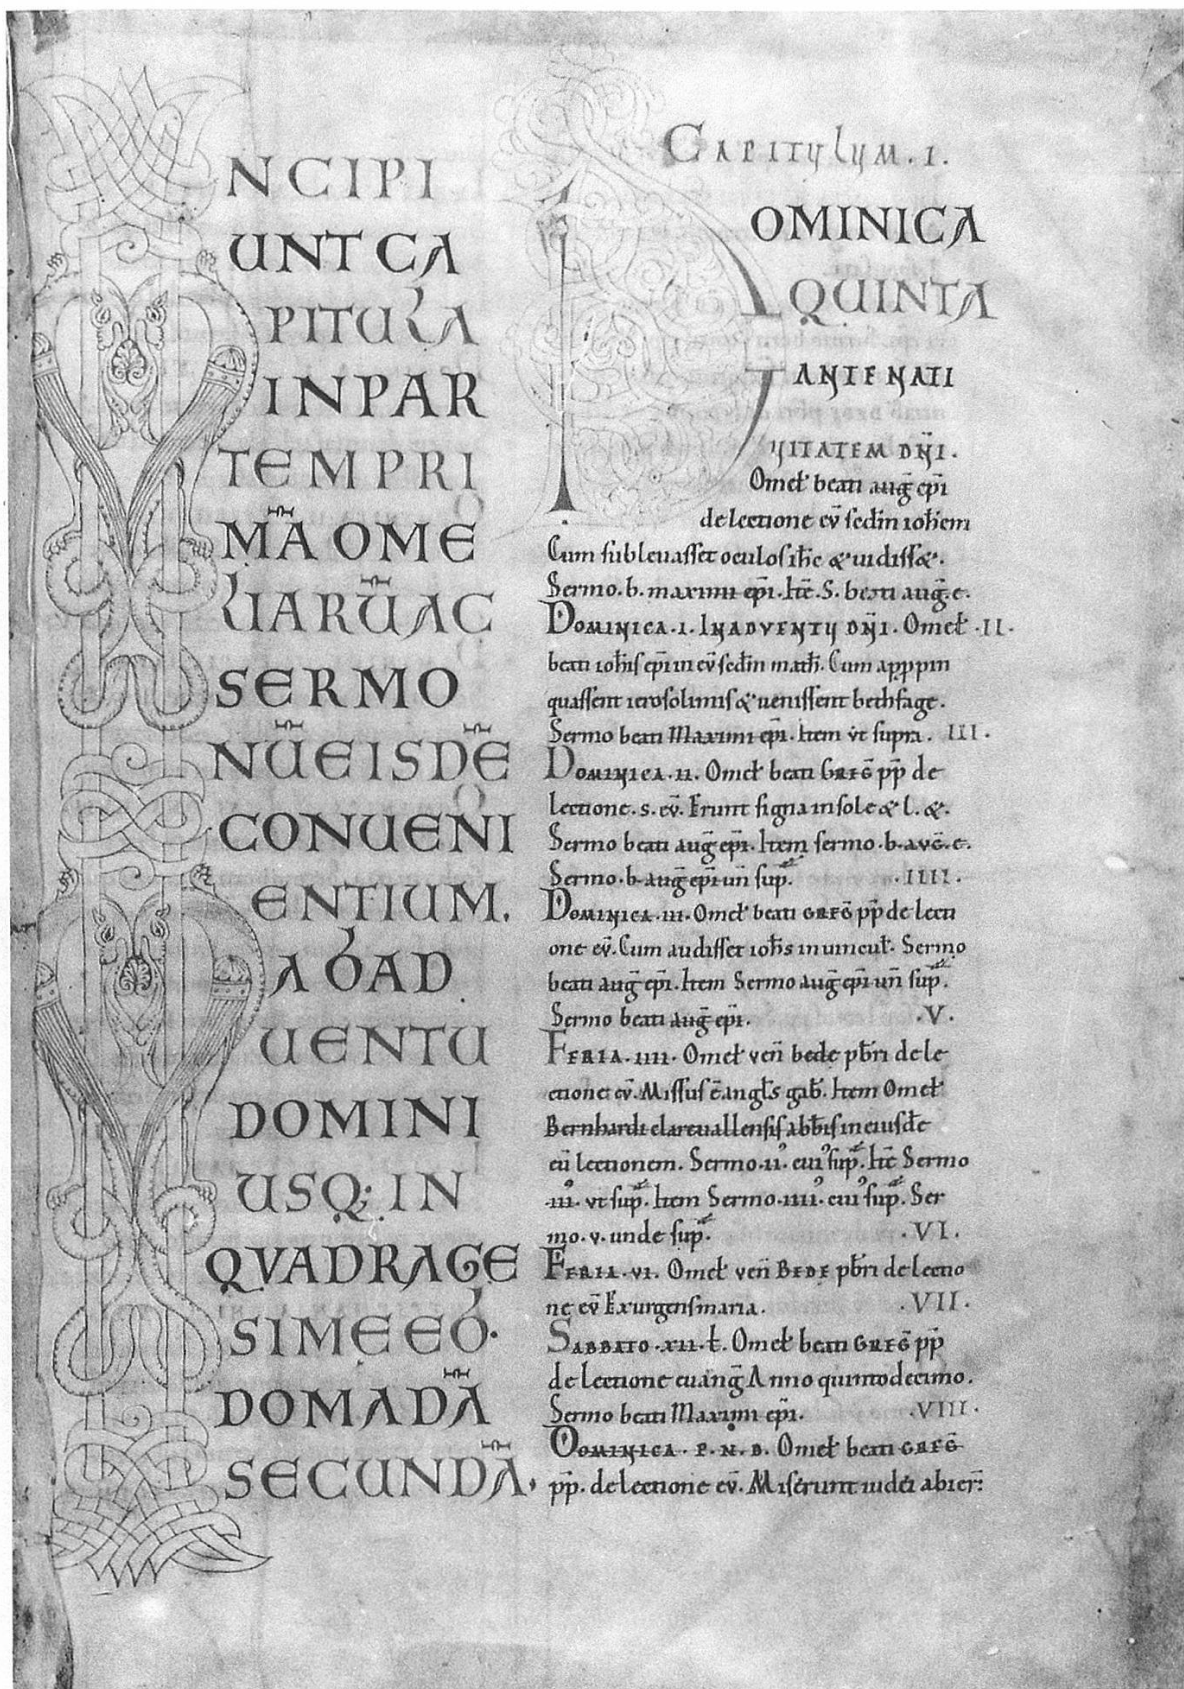 INCIPI
UNT CA
PITULA
IN PAR
TEM PRI
MA̅ OME
LIARU̅ AC
SERMO
NU̅ EISDE̅
CONUENI
ENTIUM.
AB AD
UENTU
DOMINI
USQ; IN
QVADRAGE
SIME EB
DOMADA̅
SECUNDA̅.
CAPITVLVM. I.
DOMINICA
QUINTA
ANTE NATI
VITATEM DN̅I.
Omeł beati aug̅ ep̅i
de lectione ev̅ sed̅m ioh̅em
Cum sublevasset oculos ih̅c & vidiss&.
Sermo. b. maximi ep̅i. Ite̅. S. beati aug̅. e.
DOMINICA. I. IN ADVENTV DN̅I. Omeł .II.
beati ioh̅is ep̅i in ev̅ sed̅m math̅. Cum apppin
quassent ierosolimis & venissent bethfage.
Sermo beati Maximi ep̅i. Item vt supra. III.
DOMINICA. II. Omeł beati GREG̅ pp̅ de
lectione. s. ev̅. Erunt signa in sole & l. &.
Sermo beati aug̅ ep̅i. Item sermo. b. avg̅. e.
Sermo. b. aug̅ ep̅i un̅ sup̅. .IIII.
DOMINICA. III. Omeł beati GREG̅ pp̅ de lecti
one ev̅. Cum audisset ioh̅s in vincuł. Sermo
beati aug̅ ep̅i. Item Sermo aug̅ ep̅i un̅ sup̅.
Sermo beati aug̅ ep̅i. .V.
FERIA. IIII. Omeł ven̅ bede pb̅ri de le
ctione ev̅. Missus e̅ angl̅s gab̅. Item Omeł
Bernhardi clarevallensis abb̅is in eiusde̅
eu̅ lectionem. Sermo. ii᾽. cui᾽ sup̅. Ite̅ Sermo
.iii᾽. vt sup̅. Item Sermo. iiii᾽. cui᾽ sup̅. Ser
mo. v. unde sup̅. .VI.
FERIA. VI. Omeł ven̅ BEDE pb̅ri de lectio
ne ev̅ Exurgens maria. .VII.
SABBATO. XII. ł. Omeł beati GREG̅ pp̅
de lectione euang̅ Anno quintodecimo.
Sermo beati Maximi ep̅i. .VIII.
DOMINICA. P. N. D. Omeł beati GREG̅
pp̅. de lectione ev̅. Miserunt iudei ab ier̅: